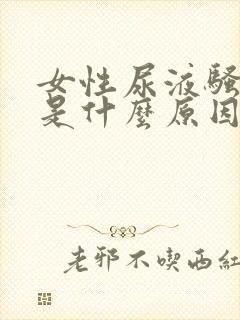 女性尿液騷
是什麼原因
老邪不喫西紅